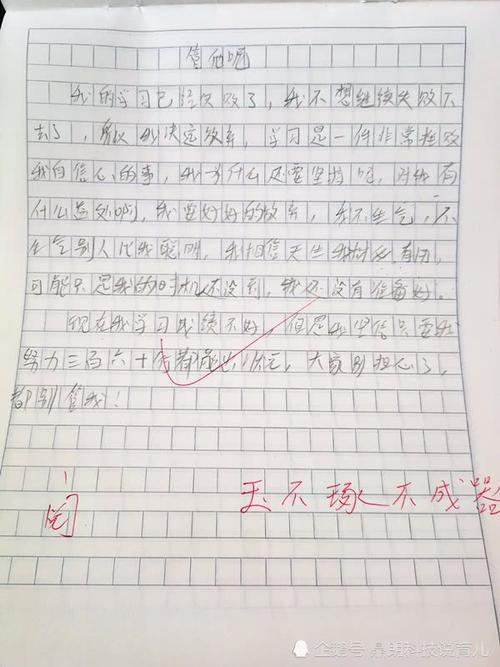 管他呢
我的学习已经失败了，我不想继续失败下
去了，所以我决定放弃，学习是一件非常挫败
我自信心的事，我为什么还要坚持呢，对我有
什么益处呢，我要好好的放弃，我不生气，不
生气别人比我聪明，我相信天生我材必有用，
可能只是我的时机还没到，我还没有准备好。
现在我学习成绩不好，但是我坚信只要我
努力三百六十行都能出状元，大家别担心了，
都别管我！
阅
玉不琢不成器
企鹅号 鼎朗科技说育儿